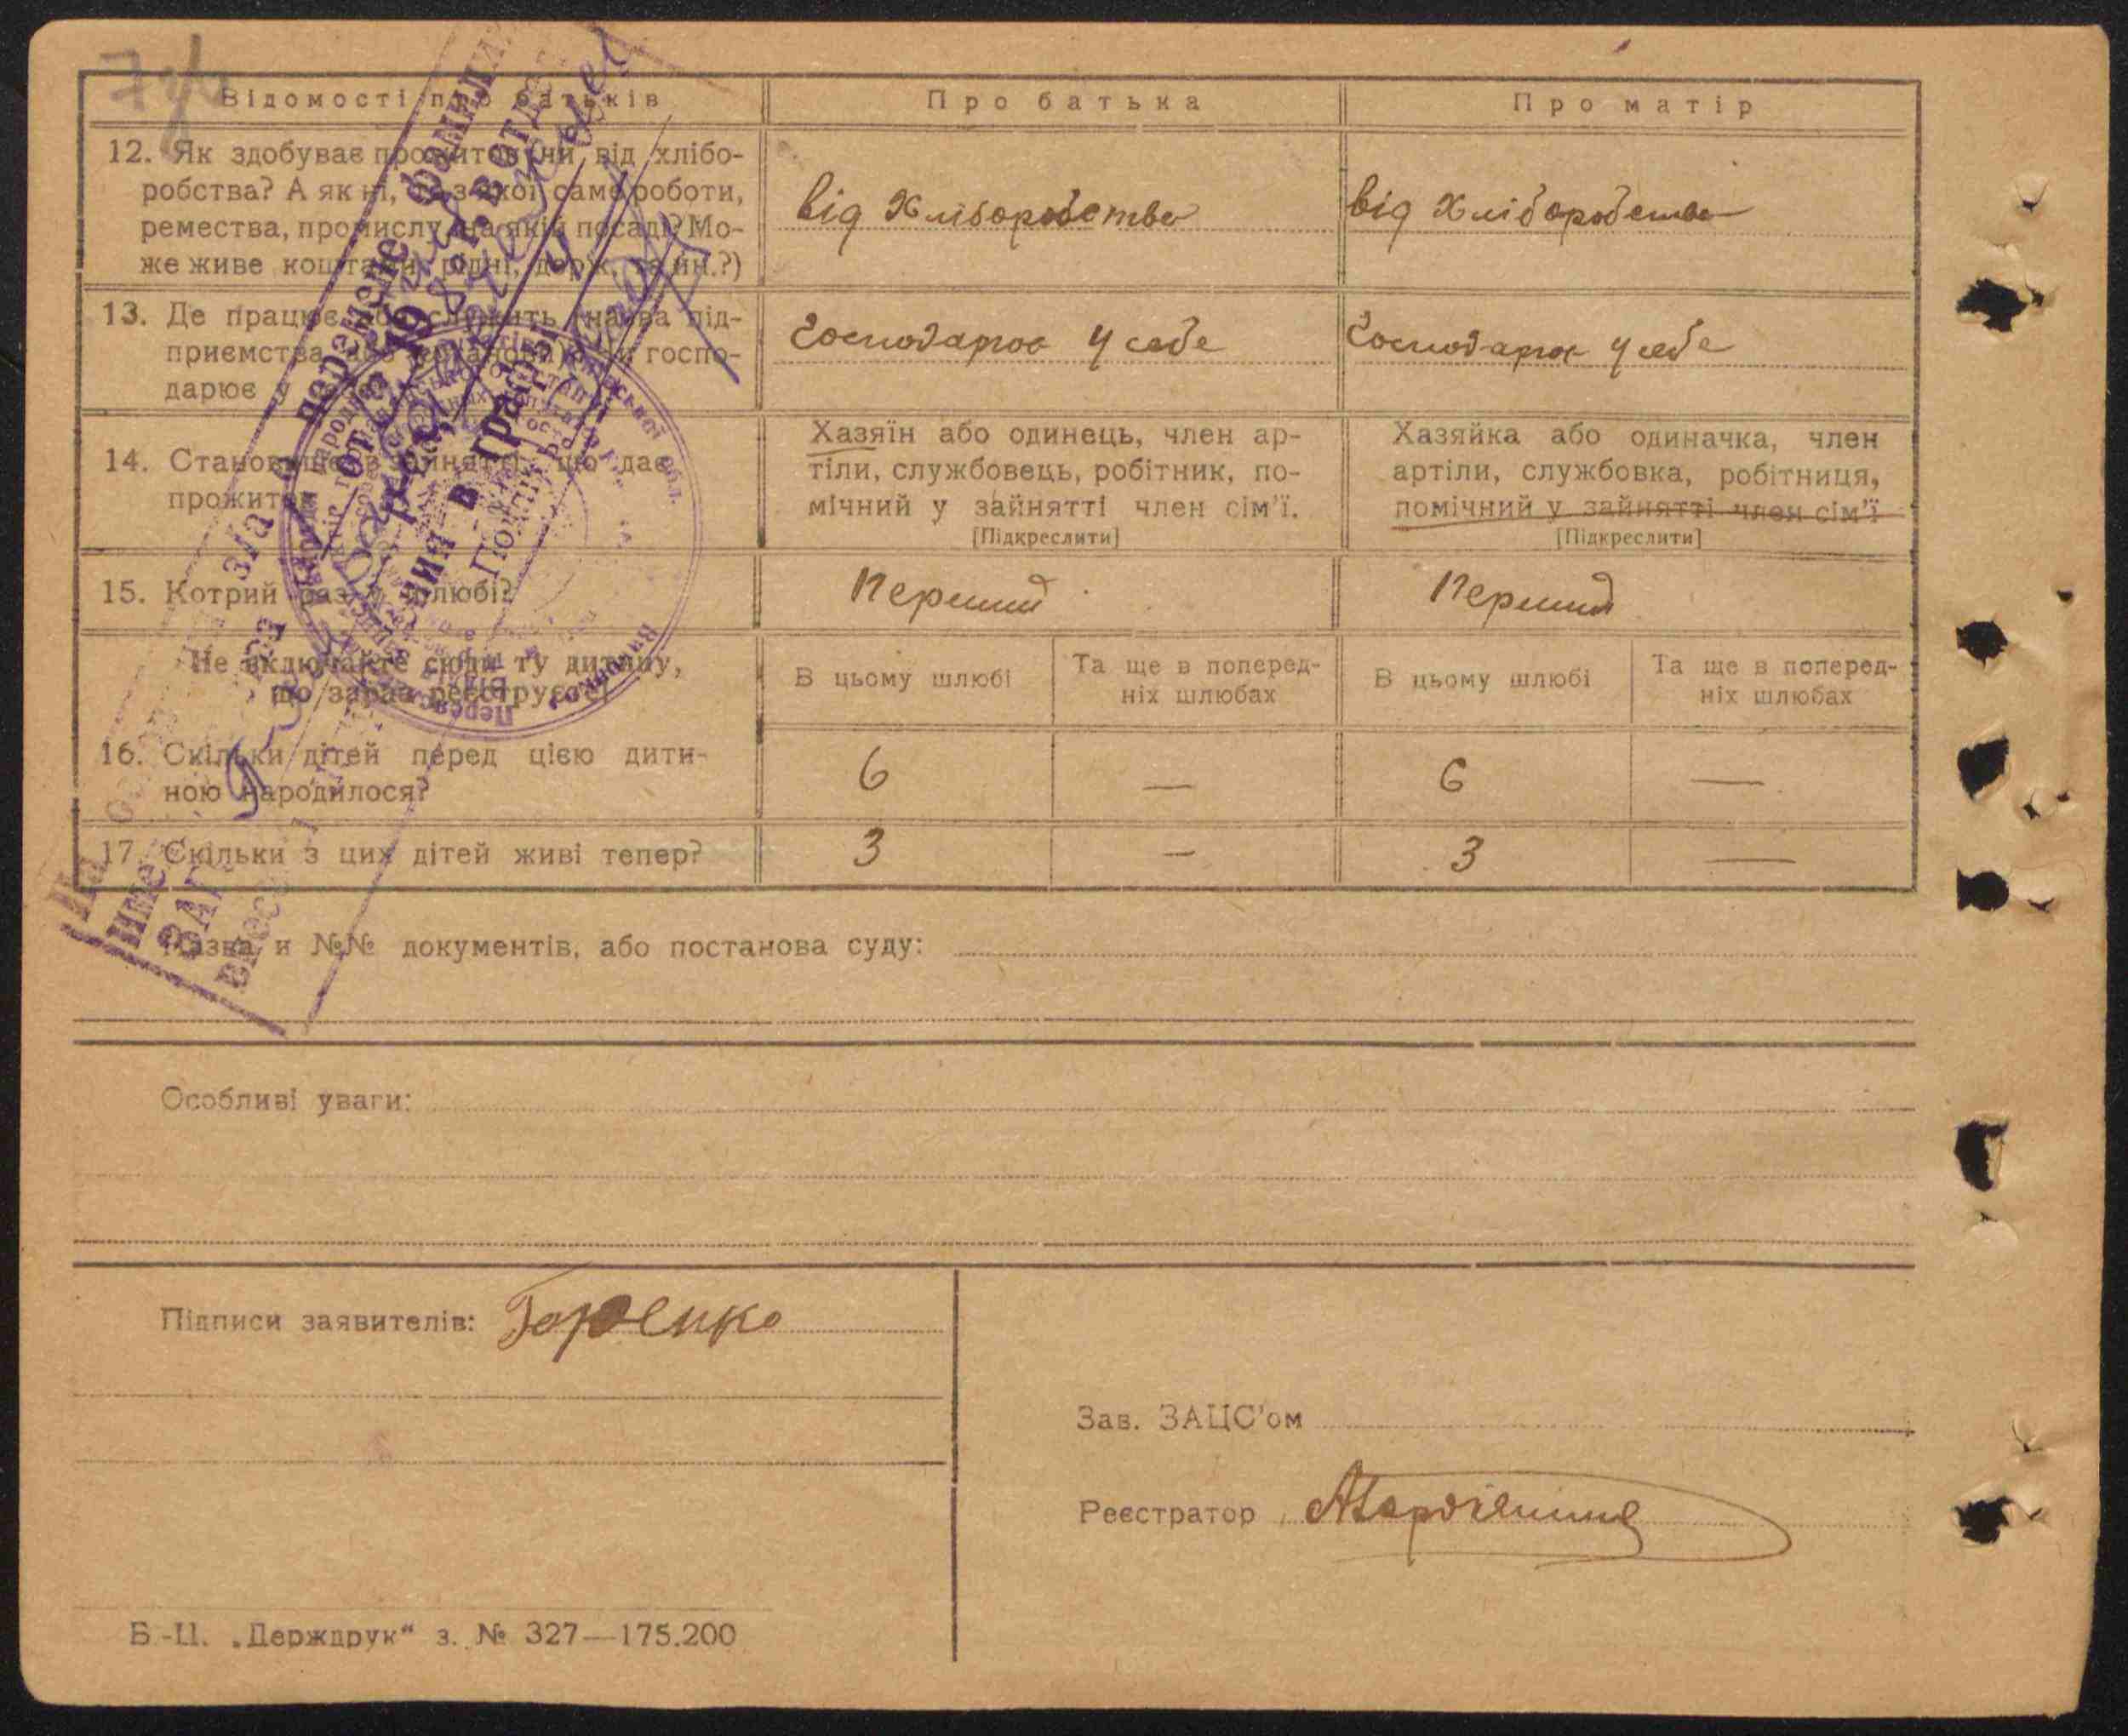 Відомості про батьків
Про батька
Про матір
12. Як здобуває прожиток, чи від хлібо-
робства? А як ні, то з якої саме роботи,
ремества, промислу (на якій посаді? Мо-
же живе коштами рідні, держ. та ин.?)
від хліборобства
від хліборобства
13. Де працює або служить (назва під-
приємства або установи) чи госпо-
дарює у себе
Господарює у себе
Господарює у себе
14. Становище в зайнятті, що дає
прожиток
Хазяїн або одинець, член ар-
тіли, службовець, робітник, по-
мічний у зайнятті член сім'ї.
[Підкреслити]
Хазяйка або одиначка, член
артіли, службовка, робітниця,
помічний у зайнятті член сім'ї
[Підкреслити]
15. Котрий раз у шлюбі?
Перший
Перший
Не включайте сюди ту дитину,
що зараз реєструєте
В цьому шлюбі
Та ще в поперед-
ніх шлюбах
В цьому шлюбі
Та ще в поперед-
ніх шлюбах
16. Скільки дітей перед цією дити-
ною народилося?
6
—
6
—
17. Скільки з цих дітей живі тепер?
3
—
3
—
Назва и №№ документів, або постанова суду:
Особливі уваги:
Підписи заявителів:
Зав. ЗАЦС'ом
Реєстратор
Б-Ц. „Держдрук“ з. № 327—175.200